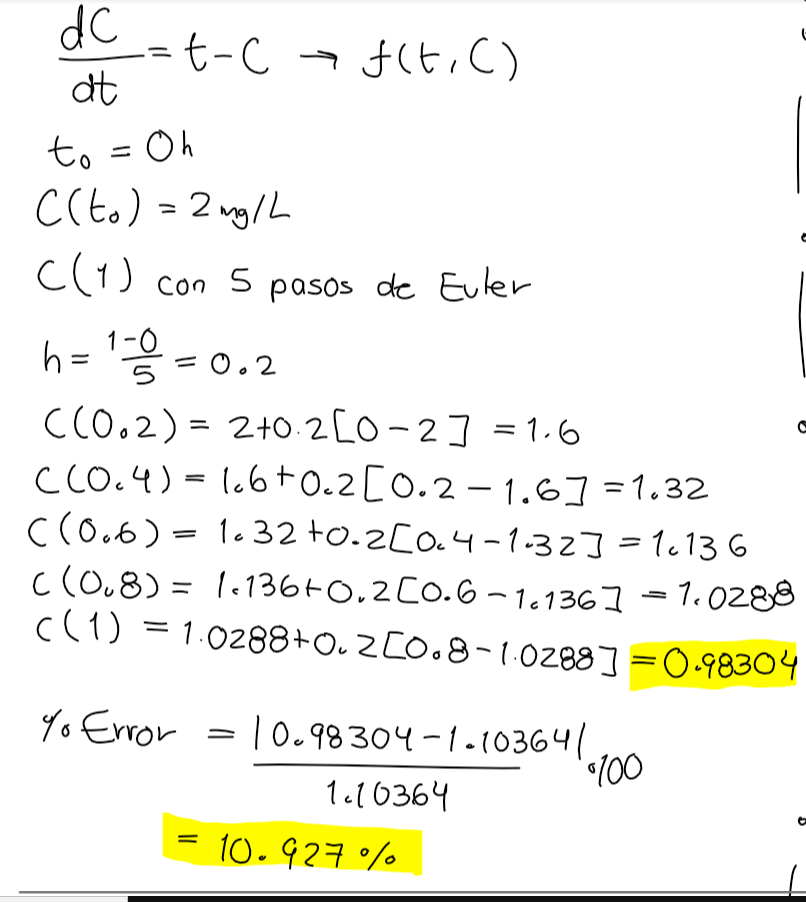 dC/dt = t-C → f(t,C)
t₀ = 0h
C(t₀) = 2 mg/L
C(1) con 5 pasos de Euler
h = 1-0/5 = 0.2
C(0.2) = 2+0.2[0-2] = 1.6
C(0.4) = 1.6+0.2[0.2-1.6] = 1.32
C(0.6) = 1.32+0.2[0.4-1.32] = 1.136
C(0.8) = 1.136+0.2[0.6-1.136] = 1.0288
C(1) = 1.0288+0.2[0.8-1.0288] = 0.98304
% Error = |0.98304-1.10364|/1.10364 •100
= 10.927 %